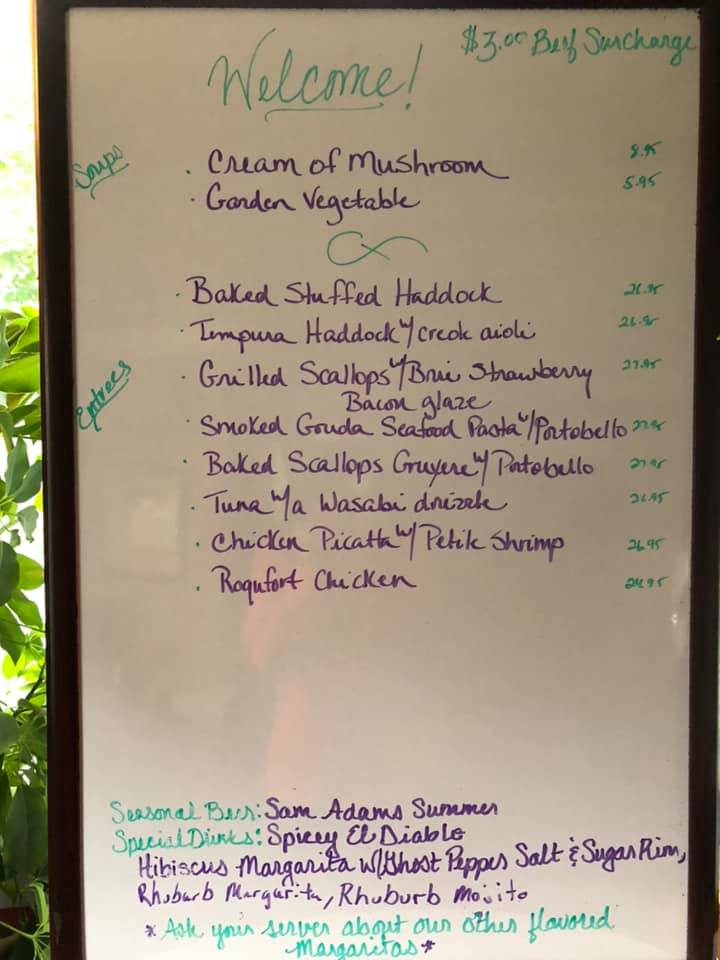 $3.00 Beef Surcharge
Welcome!
Soups
· Cream of Mushroom 8.95
· Garden Vegetable 5.95
· Baked Stuffed Haddock 26.95
· Tempura Haddock w/ creok aioli 26.95
Entrees
· Grilled Scallops w/ Brie Strawberry 27.95
Bacon glaze
· Smoked Gouda Seafood Pasta w/ Portobello 27.95
· Baked Scallops Gruyere w/ Portobello 27.95
· Tuna w/a Wasabi drizzle 26.95
· Chicken Picatta w/ Petite Shrimp 26.95
· Roqufort Chicken 24.95
Seasonal Beer: Sam Adams Summer
Special Drinks: Spicey El Diablo
Hibiscus Margarita w/ Ghost Pepper Salt & Sugar Rim,
Rhubarb Margarita, Rhuburb Mojito
*Ask your server about our other flavored
Margaritas*